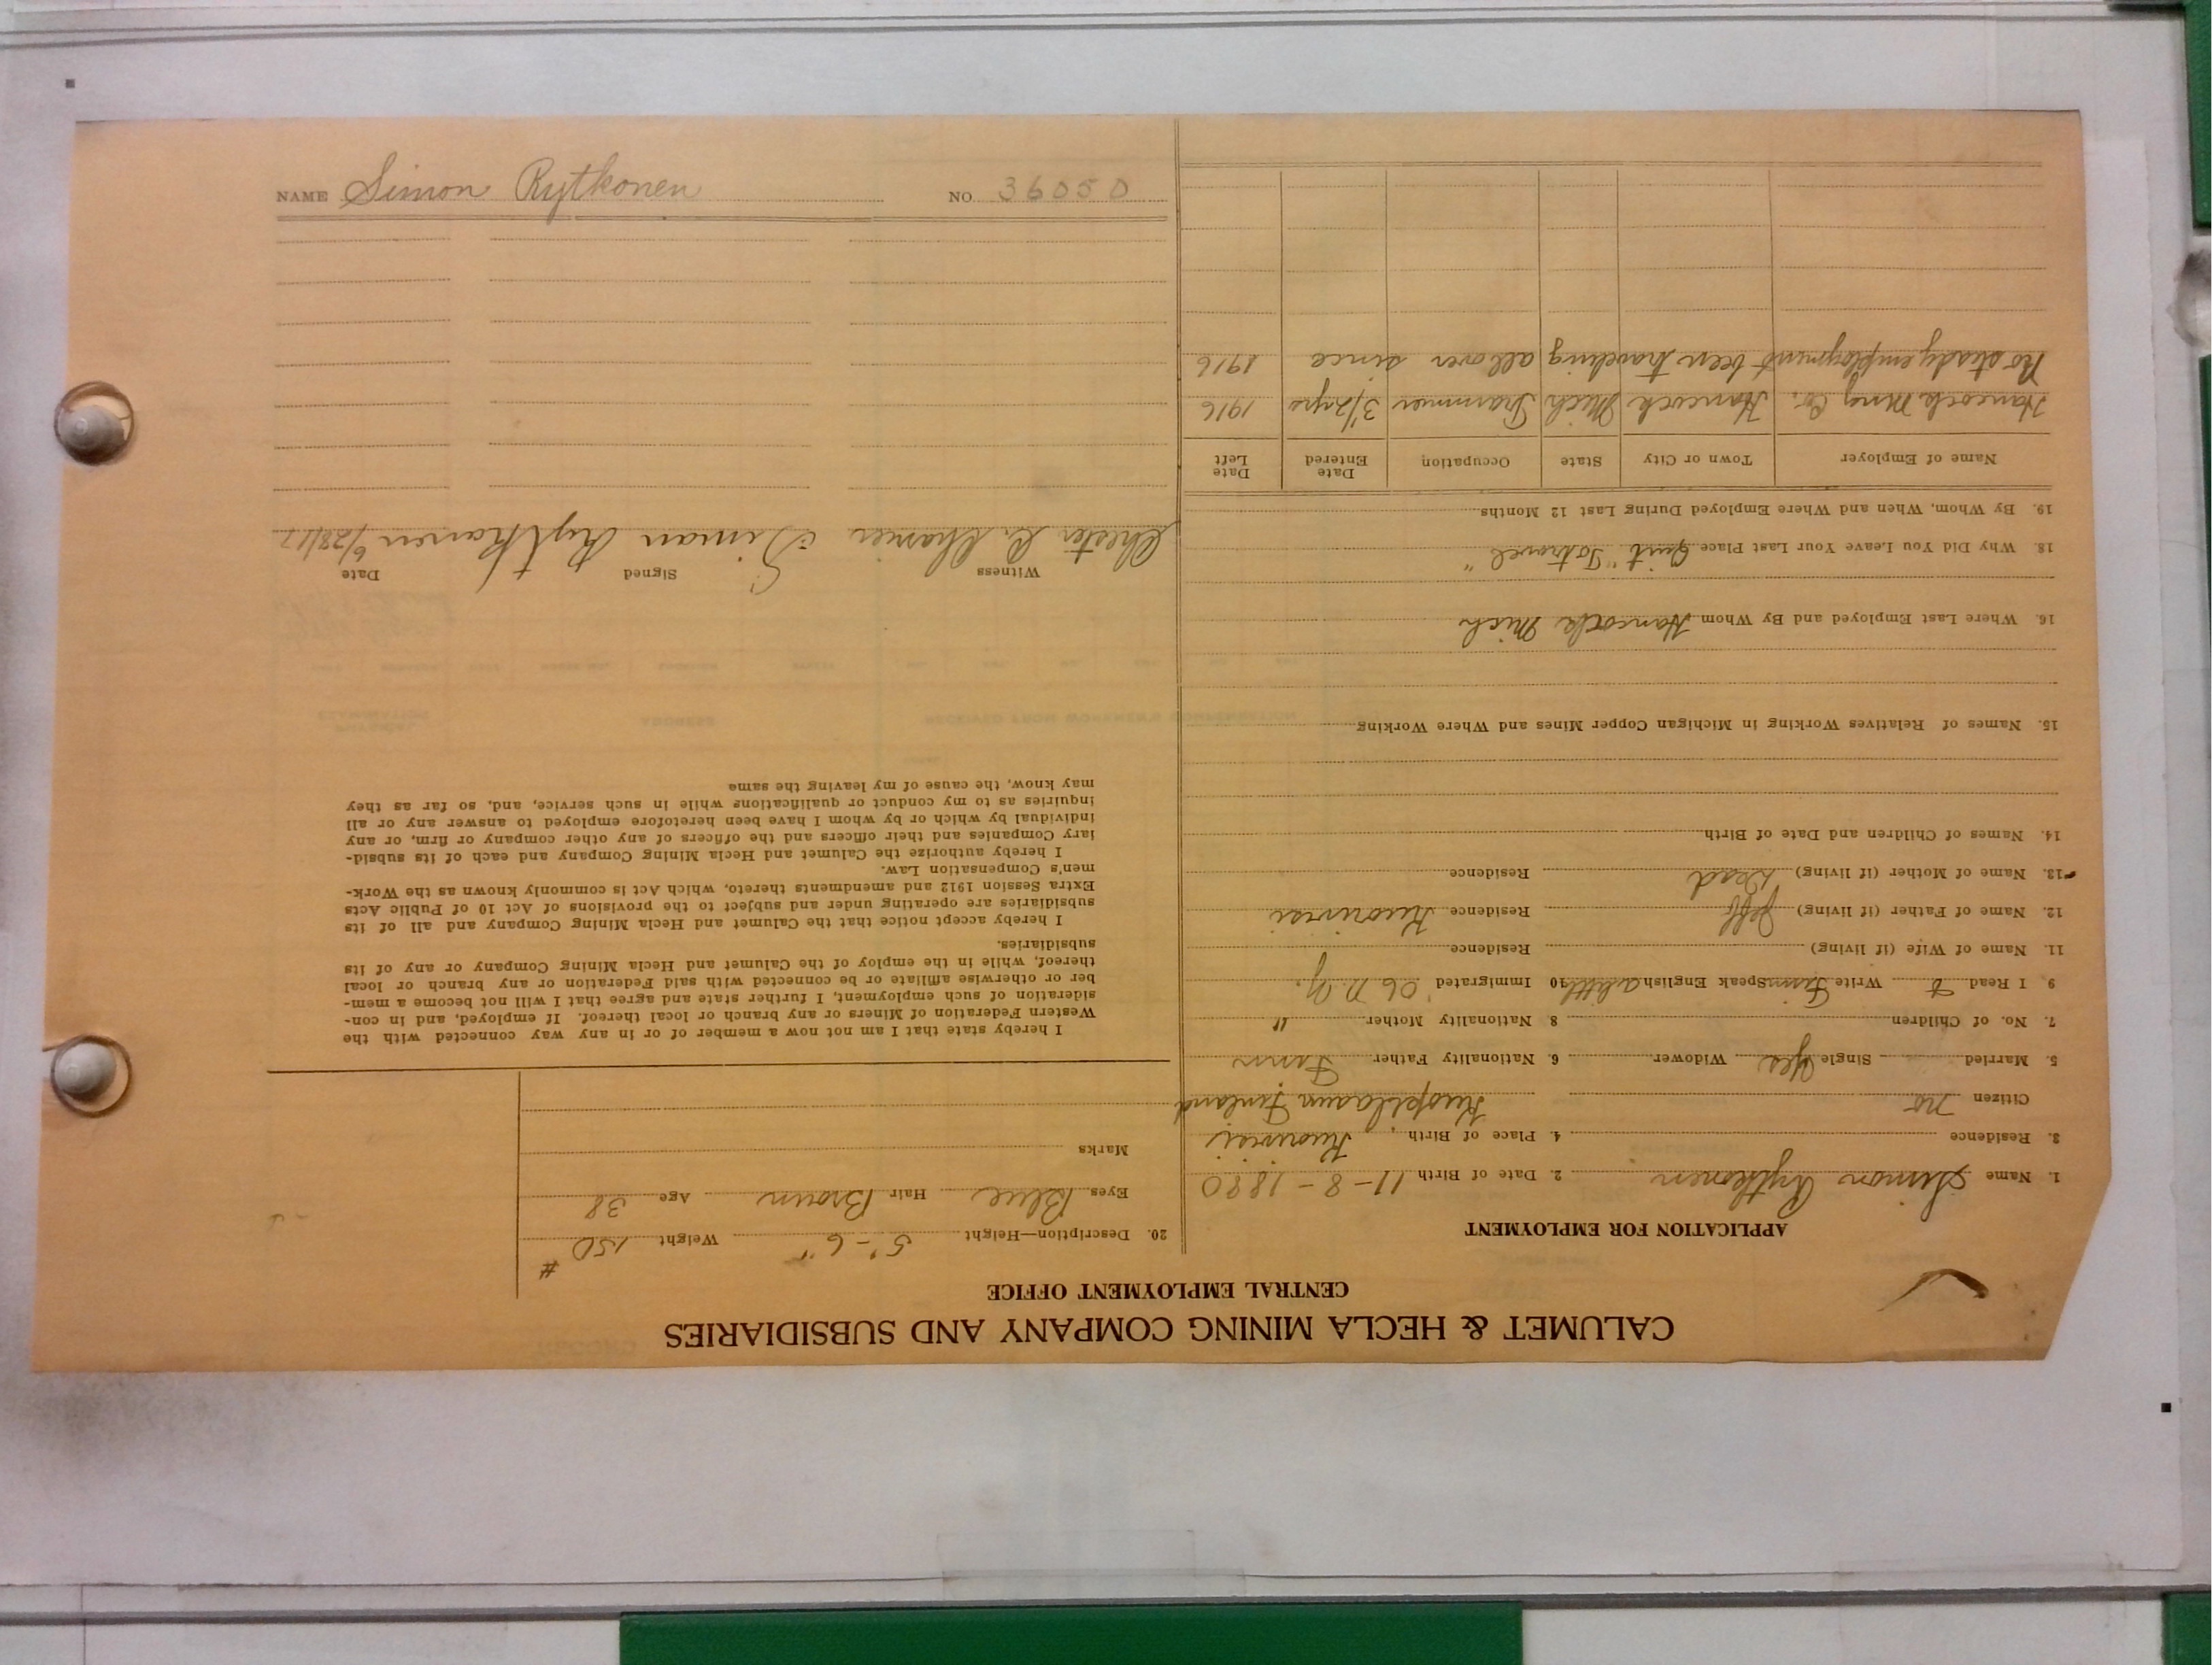 NAME Simon Rytkonen NO. 36050
CALUMET & HECLA MINING COMPANY AND SUBSIDIARIES
CENTRAL EMPLOYMENT OFFICE
APPLICATION FOR EMPLOYMENT
1. Name Simon Rytkonen 2. Date of Birth 11-8-1880
3. Residence 4. Place of Birth
Citizen no Finland
5. Married Single Yes Widower 6. Nationality Father Finn
7. No. of Children 8 Nationality Mother "
9 I Read Write Finn Speak English a little 10 Immigrated '06 N.Y.
11. Name of Wife (if living) Residence
12. Name of Father (if living) Jeff Residence
13. Name of Mother (if living) Dead Residence
14. Names of Children and Date of Birth
15. Names of Relatives Working in Michigan Copper Mines and Where Working
16. Where Last Employed and By Whom Hancock Mich
18. Why Did You Leave Your Last Place Quit "To travel"
19. By Whom, When and Where Employed During Last 12 Months
Name of Employer Town or City State Occupation Date Entered Date Left
Hancock Mng Co. Hancock Mich Trammer 3 1/2 yrs 1916
No steady employment been traveling all over since 1916
20. Description—Height 5'-6" Weight 150 #
Eyes Blue Hair Brown Age 38
Marks
I hereby state that I am not now a member of or in any way connected with the
Western Federation of Miners or any branch or local thereof. If employed, and in con-
sideration of such employment, I further state and agree that I will not become a mem-
ber or otherwise affiliate or be connected with said Federation or any branch or local
thereof, while in the employ of the Calumet and Hecla Mining Company or any of its
subsidiaries.
I hereby accept notice that the Calumet and Hecla Mining Company and all of its
subsidiaries are operating under and subject to the provisions of Act 10 of Public Acts
Extra Session 1912 and amendments thereto, which Act is commonly known as the Work-
men's Compensation Law.
I hereby authorize the Calumet and Hecla Mining Company and each of its subsid-
iary Companies and their officers and the officers of any other company or firm, or any
individual by which or by whom I have been heretofore employed to answer any or all
inquiries as to my conduct or qualifications while in such service, and, so far as they
may know, the cause of my leaving the same
Witness Signed Date
Chester Simon Rytkonen 6/28/17